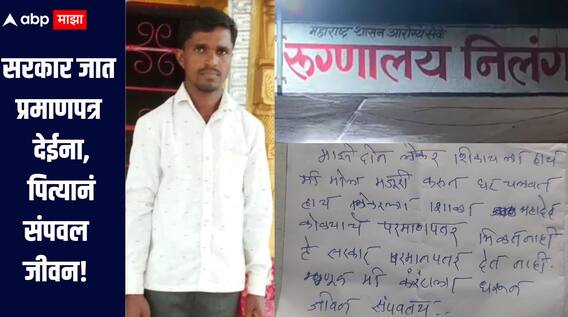 abp माझा
सरकार जात
प्रमाणपत्र
देईना,
पित्यानं
संपवल
जीवन!
महाराष्ट्र शासन आरोग्य सेवा
रूग्णालय निलंग
माझे दोन लेकर शिकायला हाय
मी मोला मजूरी करून घर चलवत
हाय लेकरला शाळा महादेव
कोळ्याचे परमाणपतर मिळत नाही
हे सरकार परमानपतर देत नाही.
म्हणून मी करंटला धरून
जीवन संपवतय..